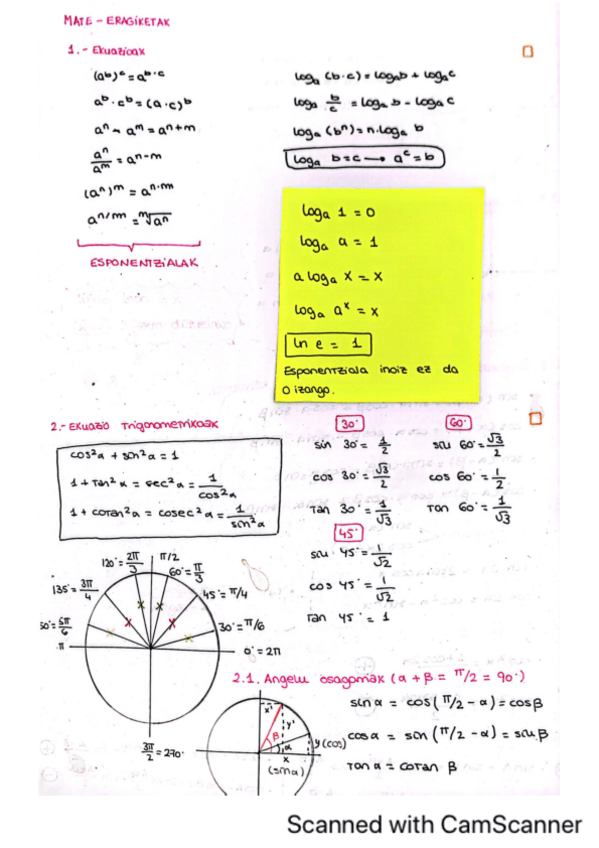 MATE - ERAGIKETAK
1.- Ekuazioak
(a^b)^c = a^b·c
a^b · c^b = (a·c)^b
a^n · a^m = a^n+m
a^n/a^m = a^n-m
(a^n)^m = a^n·m
a^n/m = ^m√a^n
ESPONENTZIALAK
log_a (b·c) = log_a b + log_a c
log_a b/c = log_a b - log_a c
log_a (b^n) = n·log_a b
log_a b = c → a^c = b
log_a 1 = 0
log_a a = 1
a log_a x = x
log_a a^x = x
ln e = 1
Esponentziala inoiz ez da
0 izango.
2.- Ekuazio Trigonometrikoak
cos²α + sin²α = 1
1 + tan²α = sec²α = 1/cos²α
1 + cotan²α = cosec²α = 1/sin²α
30°
sin 30° = 1/2
cos 30° = √3/2
Tan 30° = 1/√3
60°
sin 60° = √3/2
cos 60° = 1/2
Tan 60° = 1/√3
45°
sin 45° = 1/√2
cos 45° = 1/√2
Tan 45° = 1
120° = 2π/3
π/2
60° = π/3
135° = 3π/4
45° = π/4
50° = 5π/6
30° = π/6
π
0° = 2π
3π/2 = 270°
2.1. Angelu osagarriak (α + β = π/2 = 90°)
sin α = cos(π/2 - α) = cos β
cos α = sin (π/2 - α) = sin β
Tan α = cotan β
x'
y'
β
α
y (cos)
x
(sin α)
Scanned with CamScanner